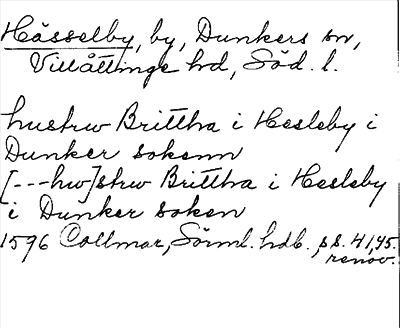 Hässelby, by, Dunkers sn,
Villåttinge hd, Söd. l.
hustrw Brittha i Hesleby i
Dunker sokenn
[---hw]strw Brittha i Hesleby
i Dunker soken
1596 Collmar, Sörml. hdb., ss. 41,45.
renov.